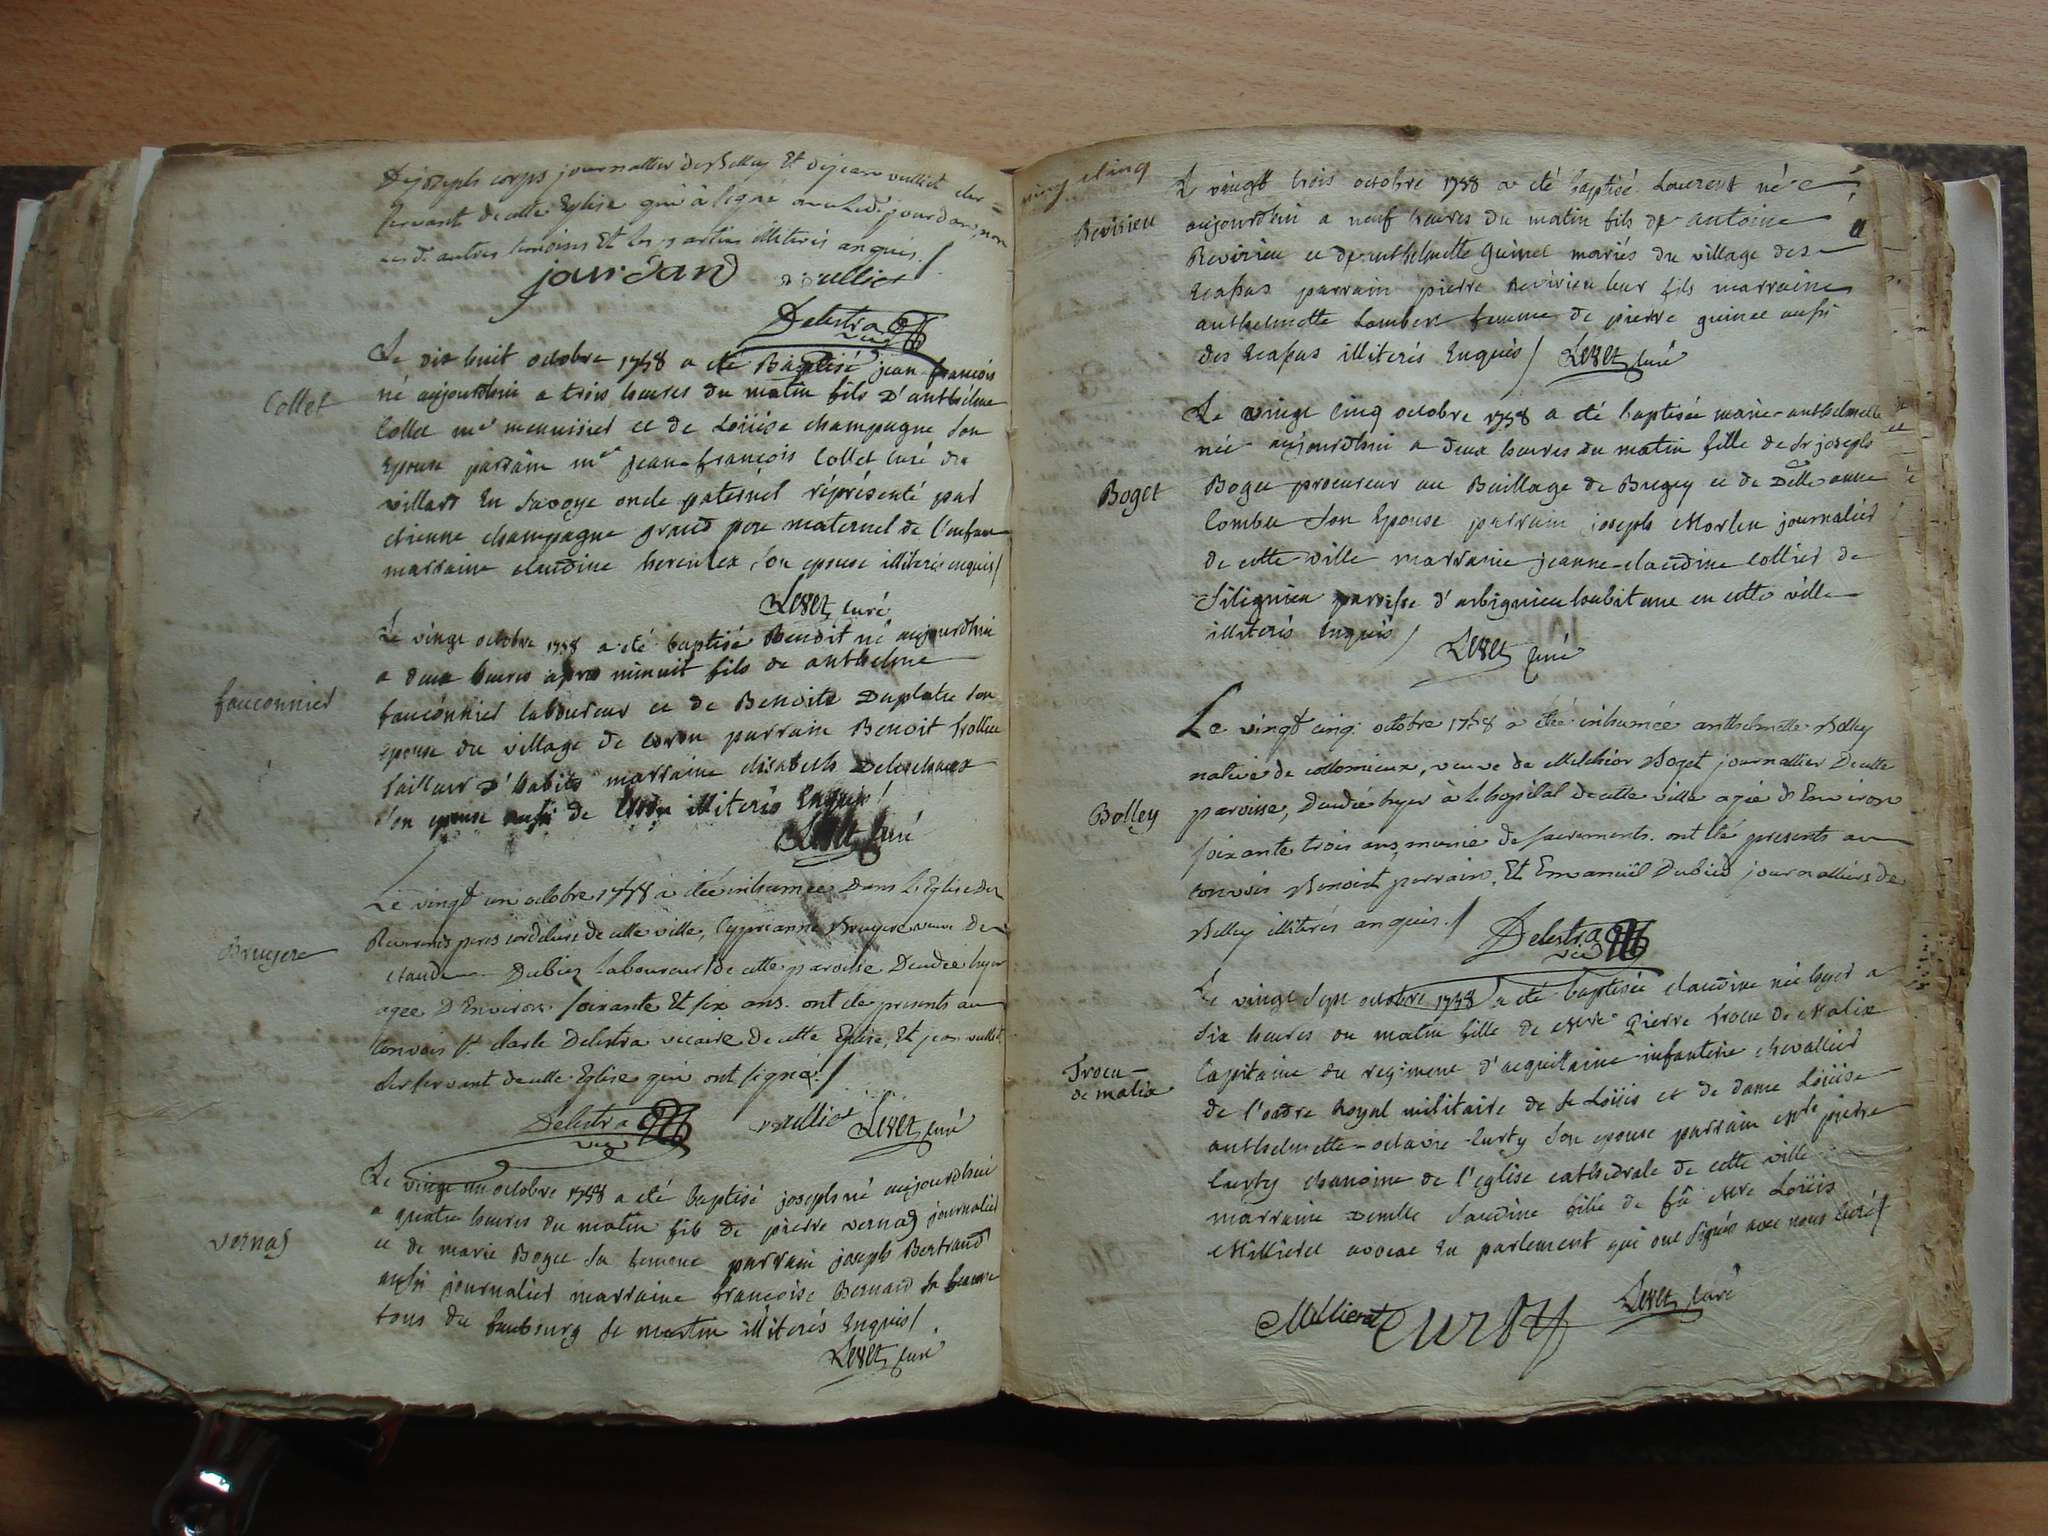 De joseph corps journallier de Belley Et de jean vulliet cler=
servant de cette Eglise qui à signé avec led. jourdan, non
les d. autres temoins Et les parties illiterés enquis./
jourdand vulliet
Delestra vic
Collet
Le dix huit octobre 1758 a été Baptisé jean-françois
né aujourdhui a trois heures du matin fils d'anthelme
Collet me menuisier et de Loüise champagne son
Epouse parrain mre jean-françois Collet curé du
villard En Savoye oncle paternel réprésenté par
etienne champagne grand pere maternel de l'enfant
marraine claudine son epouse illiterés enquis/
Levet curé
fauconnier
Le vingt octobre 1758 a eté baptisé Benoit né aujourdhui
a deux heures apres minuit fils de anthelme
fauconnier laboureur et de Benoite Duplatre son
epouse du village de coron parrain Benoit trollier
tailleur d'habits marraine elisabeth
son epouse aussi de Coron illiterés Enquis/
Levet Curé
Bruyere
Le vingt un octobre 1758 à été inhumée Dans L'Eglise des
Reverends peres cordeliers de cette ville, Cyprianne Bruyere veuve De
claude Dubiez Laboureur de cette paroisse Decedée hyer
agee D'Environ soixante Et six ans. ont été presents au
convois sr. claude Delestra vicaire de cette Eglise, Et jean vulliet
cler servant de cette Eglise qui ont signé./
Delestra vic vulliet Levet curé
vernaz
Le vingt un octobre 1758 a eté baptisé joseph né aujourdhui
a quatre heures du matin fils de pierre vernaz journalier
et de marie Boget sa femme parrain joseph Bertrand
aussi journalier marraine françoise Bernard sa femme
tous du fauxbourg st martin illiterés Enquis/
Levet curé
vingt cinq
Revirieu
Le vingt trois octobre 1758 a eté baptisé Laurent né
aujourdhui a neuf heures du matin fils de antoine
Revirieu et de anthelmette guinet mariés du village des
Ecassas parrain pierre Revirieu leur fils marraine
anthelmette Lambert femme de pierre guinet aussi
des Ecassas illiterés Enquis/ Levet curé
Boget
Le vingt cinq octobre 1758 a eté baptisée marie-anthelmette
née aujourdhui a deux heures du matin fille de sr joseph
Boget procureur au Baillage de Bugey et de Delle anne
Combet son Epouse parrain joseph Morlin journalier
de cette ville marraine jeanne-claudine Collier de
Silignieu paroisse d'arbignieu habitant en cette ville
illiterés Enquis/ Levet Curé
Bolley
Le vingt cinq octobre 1758 à étée inhumée anthelmette Bolley
native de collomieux, veuve de Melchior Boget journallier De cette
paroisse, Decedée hyer à L'hopital de cette ville agée d'Environ
soixante trois ans, munie de sacrements. ont été presents au
convois Benoist perrain, Et Emanuël Dubiez journalliers de
Belley illiterés enquis./
Delestra vic
Trocu-
de malix
Le vingt sept octobre 1758 a eté baptisée claudine née hyer a
six heures du matin fille de Mre Pierre Trocu de Malix
Capitaine au regiment d'acquittaine-infanterie chevallier
de l'ordre Royal militaire de st Loüis et de dame Loüise
anthelmette-octavie Curty son epouse parrain Mre pierre
Curty chanoine de l'eglise cathedrale de cette ville
marraine Demlle claudine fille de fû Mre Loüis
Millieret avocat En parlement qui ont signés avec nous Curé/
Millieret Curty Levet curé